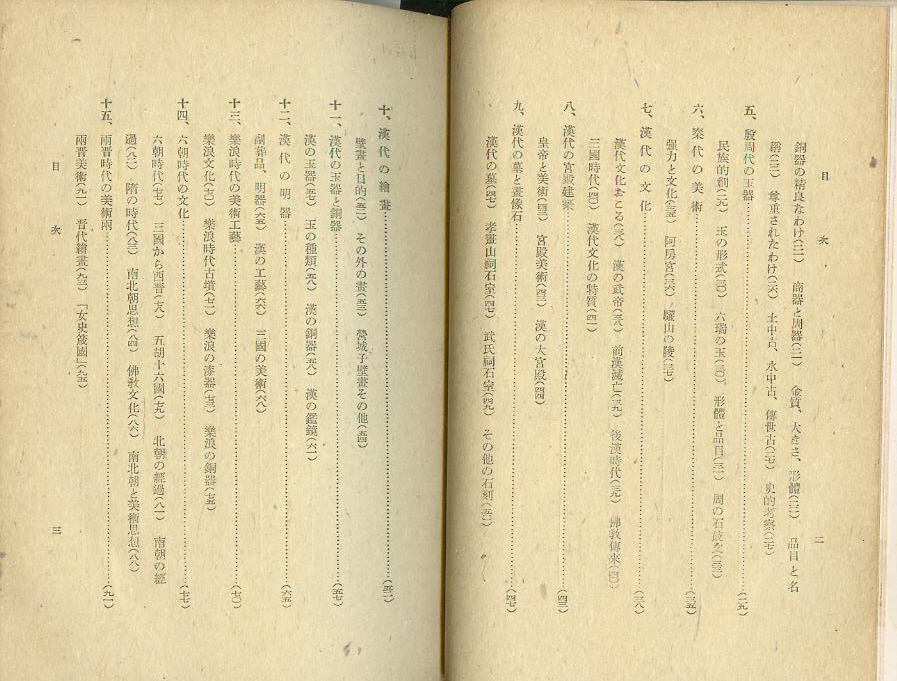 目次
二
銅器の精良なわけ(二一) 商器と周器(二一) 金質、大きさ、形體(二二) 品目と名
稱(二三) 尊重されたわけ(二六) 土中古、水中古、傳世古(二七) 史的考察(二七)
五、殷周代の玉器……(二九)
民族的創(二九) 玉の形式(三〇) 六瑞の玉(三〇) 形體と品目(三一) 周の石鼓文(三三)
六、秦代の美術……(三五)
强力と文化(三五) 阿房宮(三六) 驪山の陵(三七)
七、漢代の文化……(三八)
漢代文化おこる(三八) 漢の武帝(三八) 前漢滅亡(三九) 後漢時代(三九) 佛敎傳來(四〇)
三國時代(四〇) 漢代文化の特質(四一)
八、漢代の宮殿建築……(四三)
皇帝と美術(四三) 宮殿美術(四三) 漢の大宮殿(四四)
九、漢代の墓と畫像石……(四七)
漢代の墓(四七) 孝堂山祠石室(四七) 武氏祠石室(四九) その他の石刻(五〇)
十、漢代の繪畫……(五二)
壁畫と目的(五二) その外の畫(五三) 營城子壁畫その他(五四)
十一、漢代の玉器と銅器……(五七)
漢の玉器(五七) 玉の種類(五八) 漢の銅器(五八) 漢の鑑鏡(六一)
十二、漢代の明器……(六五)
副葬品、明器(六五) 漢の工藝(六六) 三國の美術(六八)
十三、樂浪時代の美術工藝……(七〇)
樂浪文化(七〇) 樂浪時代古墳(七一) 樂浪の漆器(七三) 樂浪の銅器(七五)
十四、六朝時代の文化……(七七)
六朝時代(七七) 三國から西晋(七八) 五胡十六國(七九) 北朝の經過(八一) 南朝の經
過(八二) 隋の時代(八三) 南北朝思想(八四) 佛敎文化(八六) 南北朝と美術思想(八八)
十五、兩晋時代の美術雨……(九一)
兩晋美術(九一) 晋代繪畫(九三) 「女史箴圖」(九五)
目次
三